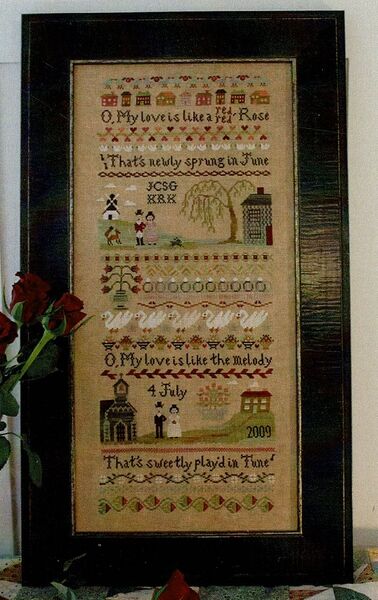 O, My love is like a red red Rose
That's newly sprung in June
JCSG
KRK
O, My love is like the melody
4 July
2009
That's sweetly play'd in Tune